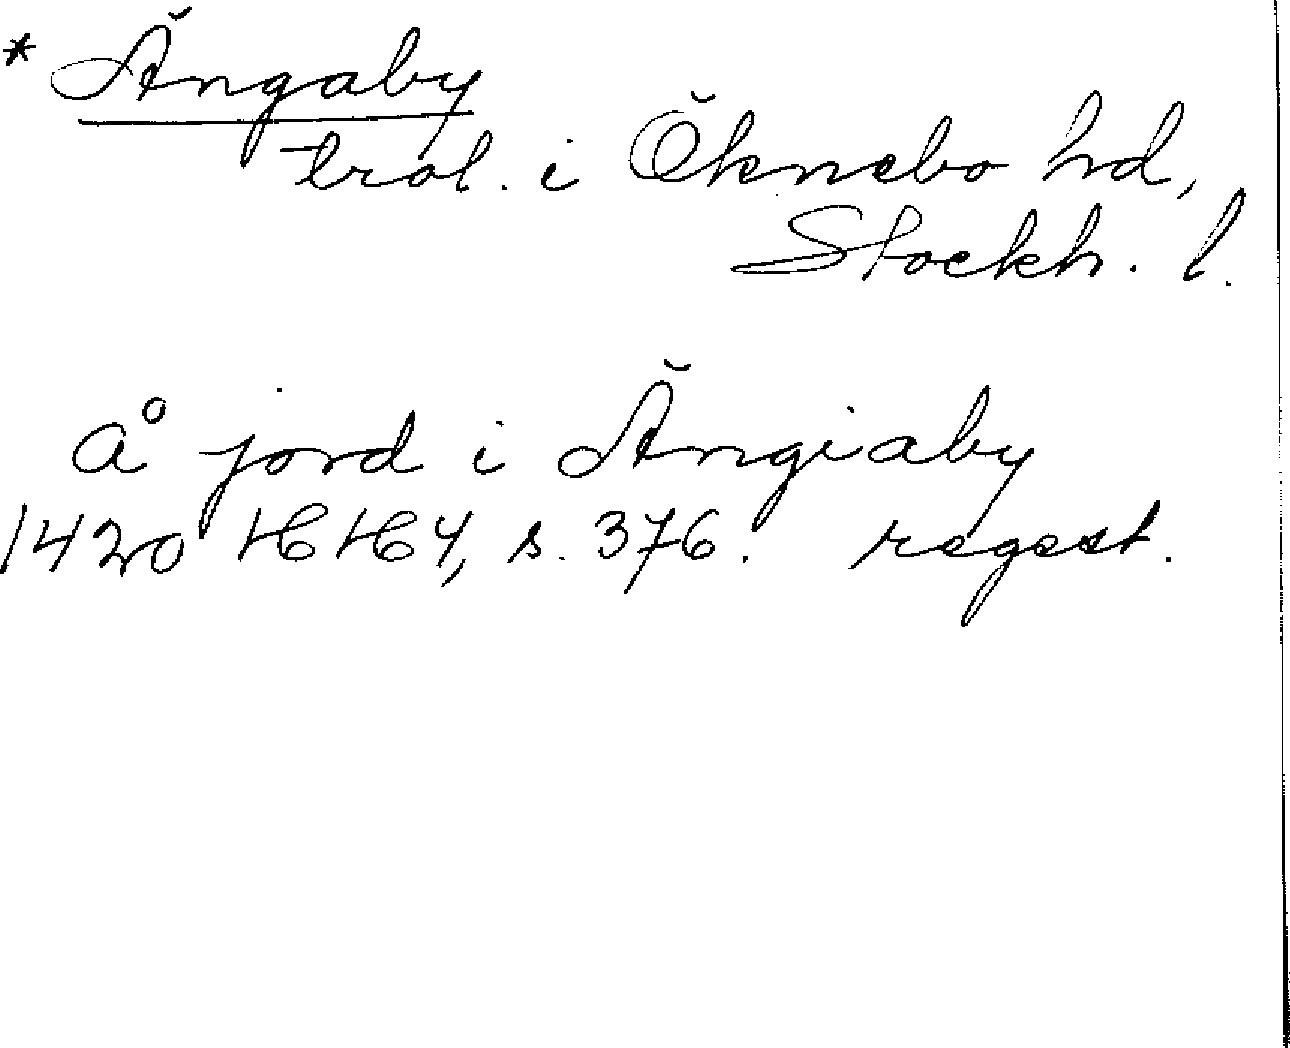 * Ängaby
trol. i Öknebo hd,
Stockh. l.
å jord i Ängiaby
1420 HH 4, s. 376. regest.